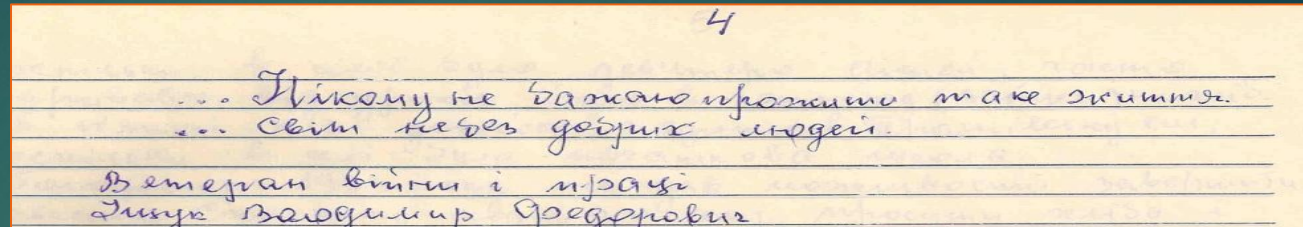 4
... Нікому не бажаю прожити таке життя.
... Світ не без добрих людей.
Ветеран війни і праці
Іщук Володимир Федорович